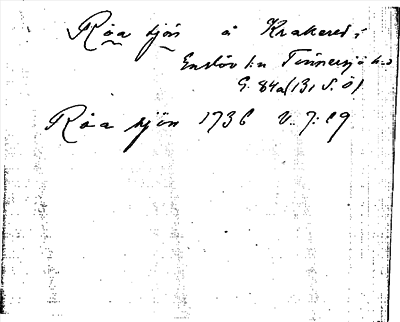 Röa sjön å Krakered i
Enslöv sn Tönnersjö hd
G. 84a (31 S. Ö)
Röa sjön 1736 V: 7: 19